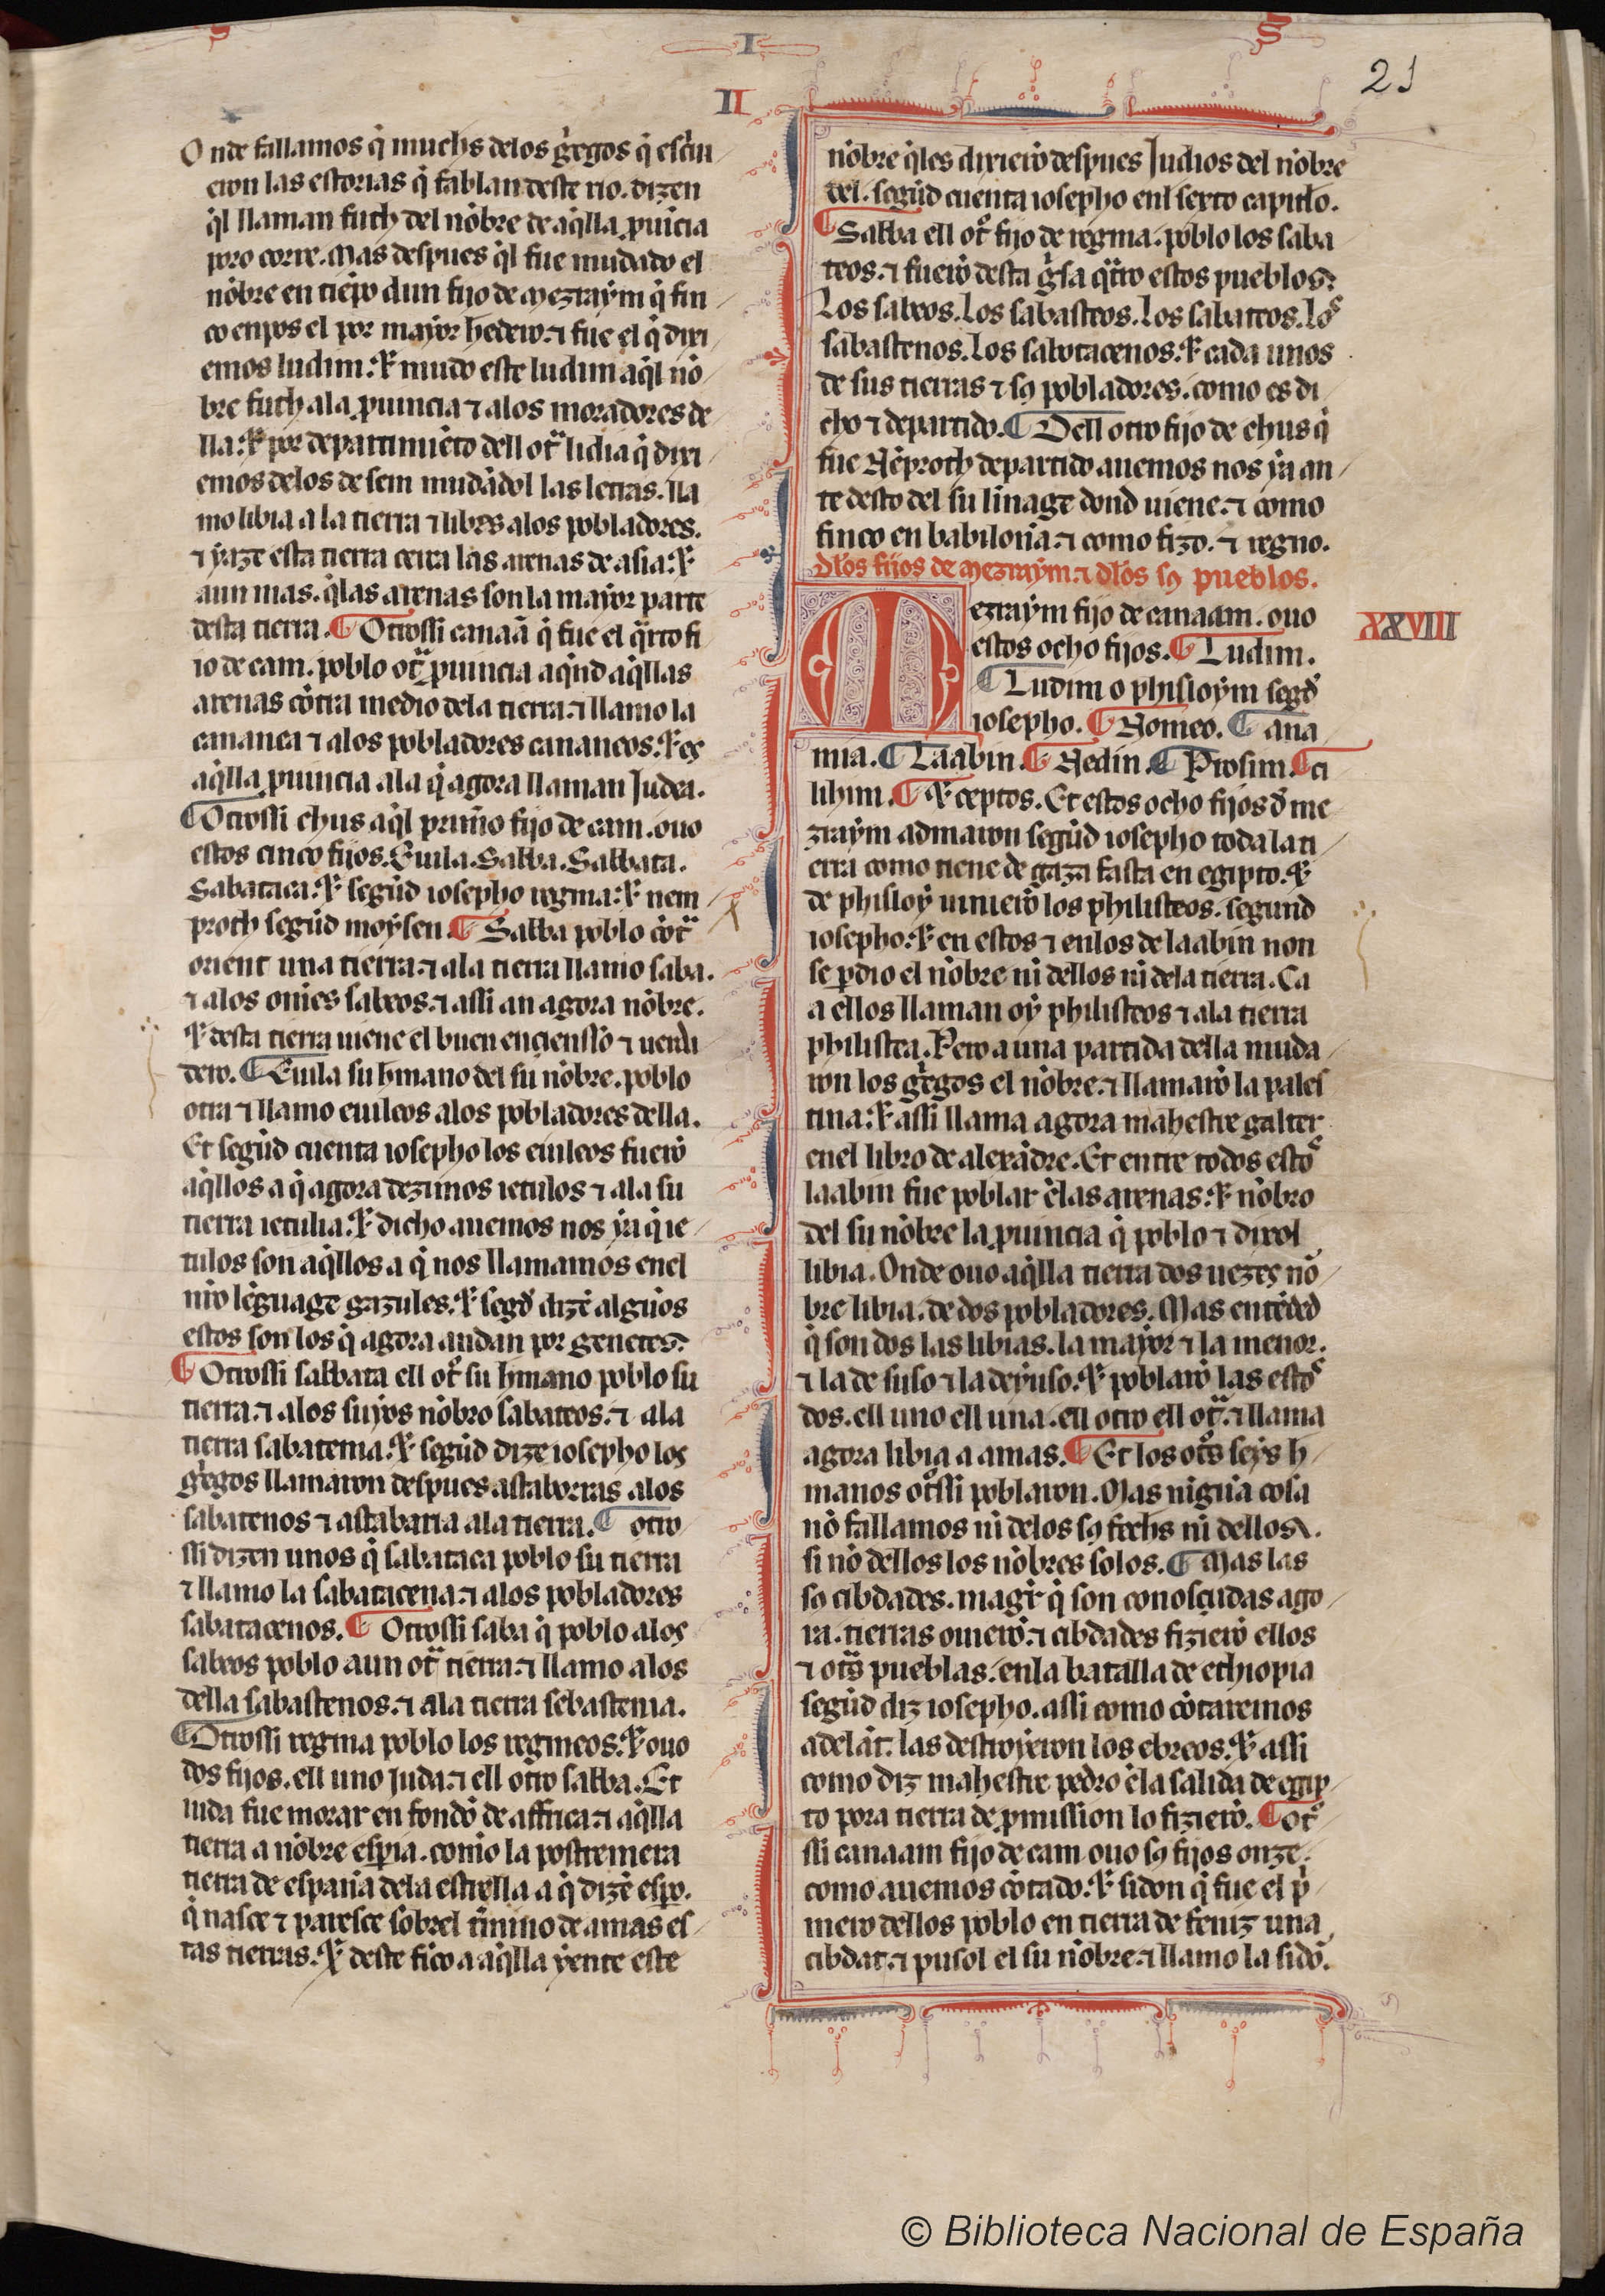 S
I
S
21
II
Onde fallamos q̃ muchs delos gͥegos q̃ escͥui
eron las estorias q̃ fablan deste rio. dizen
q̃l llaman futh del nõbre de aq̃lla ꝓuĩcia
poro corre. Mas despues q̃l fue mudado el
nõbre en tiẽpo dun fijo de mezraym q̃ fin
co enpos el por mayor h̃edero. ⁊ fue el q̃ dixi
emos ludim: ⁊ mudo este ludim aq̃l nõ
bre futh ala ꝓuincia ⁊ alos moradores de
lla: ⁊ por departimiẽto dell otͣ lidia q̃ dixi
emos delos de sem mudãdol las letras. lla
mo libia a la tierra ⁊ libres alos pobladores.
⁊ yaze esta tierra cerca las arenas de asia: ⁊
aun mas. q̃las arenas son la mayor parte
desta tierra. ¶ Otrossi canaã q̃ fue el qͣrto fi
io de cam. poblo otͣ ꝓuincia aq̃nd aq̃llas
arenas cõtra medio dela tierra. ⁊ llamo la
cananea ⁊ alos pobladores cananeos. ⁊ es
aq̃lla ꝓuincia ala q̃ agora llaman Judea.
¶ Otrossi chus aq̃l primͦo fijo de cam. ouo
estos cinco fijos. Euila. Sabba. Sabbata.
Sabataca: ⁊ segũd iosepho regma: ⁊ nem
proth segũd moysen. ¶ Sabba poblo cõtͣ
orient una tierra. ⁊ ala tierra llamo saba.
⁊ alos om̃es sabeos. ⁊ assi an agora nõbre.
⁊ desta tierra uiene el buen encienssõ ⁊ uerda
dero. ¶ Euila su h̃mano del su nõbre. poblo
otra ⁊ llamo euileos alos pobladores della.
Et segũd cuenta iosepho los euileos fuerõ
aq̃llos a q̃ agora dezimos ietulos ⁊ ala su
tierra ietulia: ⁊ dicho auemos nos ya q̃ ie
tulos son aq̃llos a q̃ nos llamamos enel
nr̃o lẽguage gazules. ⁊ segͩ dizẽ algũos
estos son los q̃ agora andan por genetes.
¶ Otrossi sabbata ell otͦ su h̃mano poblo su
tierra. ⁊ alos suyos nõbro sabateos. ⁊ ala
tierra sabatenia. ⁊ segũd dize iosepho los
gͥegos llamaron despues astaborras alos
sabatenos ⁊ astabaria ala tierra. ¶ otro
ssi dizen unos q̃ sabataca poblo su tierra
⁊ llamo la sabatacena. ⁊ alos pobladores
sabatacenos. ¶ Otrossi saba q̃ poblo alos
sabeos poblo aun otͣ tierra. ⁊ llamo alos
della sabastenos. ⁊ ala tierra sebastenia.
¶ Otrossi regma poblo los regmeos. ⁊ ouo
dos fijos. ell uno Juda. ⁊ ell otro sabba. Et
iuda fue morar en fondõ de affrica. ⁊ aq̃lla
tierra a nõbre esp̃ia. como la postremera
tierra de espan̄a dela estrella a q̃ dizẽ esp̃o.
q̃ nasce ⁊ paresce sobrel t̃mino de amas es
tas tierras. ⁊ deste fico a aq̃lla yente este
nõbre q̃les dixierõ despues Judios del nõbre
del. segũd cuenta iosepho enl sexto capitło.
¶ Sabba ell otͦ fijo de regma. poblo los saba
teos. ⁊ fuerõ desta gͥsa qͣtro estos pueblos.
Los sabeos. Los sabasteos. Los sabateos. Los
sabastenos. Los sabotacenos. ⁊ cada unos
de sus tierras ⁊ sꝯ pobladores. como es di
cho ⁊ departido. ¶ Dell otro fijo de chus q̃
fue Nẽproth departido auemos nos ya an
te desto del su linage dond uiene. ⁊ como
finco en babilonia. ⁊ como fizo. ⁊ regno.
dlos fijos de mezraym. ⁊ dlos sꝯ pueblos.
XXVIII
Mezraym fijo de canaam. ouo
estos ocho fijos. ¶ Ludim.
¶ Ludim o phisioym segͩ
iosepho. ¶ Nomeo. ¶ ana
mia. ¶ Laabin. ¶ Nedin. ¶ Prosim. ¶ ci
lihim. ¶ ⁊ ceptos. Et estos ocho fijos đ me
zraym admaron segũd iosepho toda la ti
erra como tiene de gaza fasta en egipto. ⁊
de phisioy uiniero los philisteos. segund
iosepho: ⁊ en estos ⁊ enlos de laabin non
se ꝑdio el nõbre ni dellos ni dela tierra. Ca
a ellos llaman oy philisteos ⁊ ala tierra
philistea. Pero a una partida della muda
ron los gͥegos el nõbre. ⁊ llamarõ la pales
tina: ⁊ assi llama agora mahestre galter
enel libro de alexãdre. Et entre todos estos
laabin fue poblar ẽlas arenas: ⁊ nõbro
del su nõbre la ꝓuincia q̃ poblo ⁊ dixol
libia. Onde ouo aq̃lla tierra dos uezes nõ
bre libia. de dos pobladores. Mas entẽded
q̃ son dos las libias. la mayor ⁊ la menor.
⁊ la de suso ⁊ la deyuso. ⁊ poblarõ las estos
dos. ell uno ell una. ell otro ell otͣ. ⁊ llama
agora libia a amas. ¶ Et los otͦs seys h̃
manos otͦssi poblaron. Mas nigũa cosa
nõ fallamos ni delos sꝯ fechs ni dellos.
si nõ dellos los nõbres solos. ¶ Mas las
sꝯ cibdades. magr̃ q̃ son conosçudas ago
ra. tierras ouierõ. ⁊ cibdades fizierõ ellos
⁊ otͣs pueblas. enla batalla de ethiopia
segũd diz iosepho. assi como cõtaremos
adelãt. las destroyeron los ebreos. ⁊ assi
como diz mahestre pedro ẽla salida de egip
to pora tierra de ꝓmission lo fizierõ. ¶ otͦ
ssi canaam fijo de cam ouo sꝯ fijos onze.
como auemos cõtado. ⁊ sidon q̃ fue el pͥ
mero dellos poblo en tierra de feniz una
cibdat. ⁊ pusol el su nõbre. ⁊ llamo la sidõ.
© Biblioteca Nacional de España